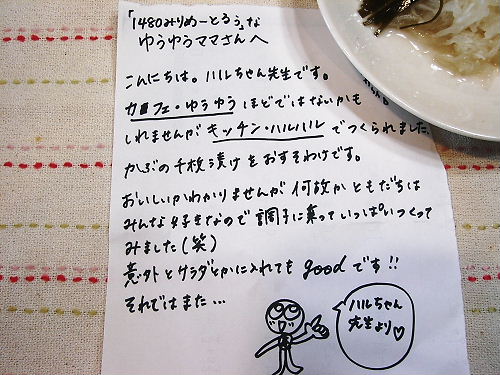 「1480みりめーとるぅ」な
ゆうゆうママさんへ
こんにちは。ハルちゃん先生です。
カフェ・ゆうゆうほどではないかも
しれませんがキッチン・ハルハルでつくられました、
かぶの千枚漬けをおすそわけです。
おいしいかわかりませんが何故かともだちは
みんな好きなので調子に乗っていっぱいつくって
みました(笑)
意外とサラダとかに入れてもgoodです!!
それではまた…
ハルちゃん
先生より♡